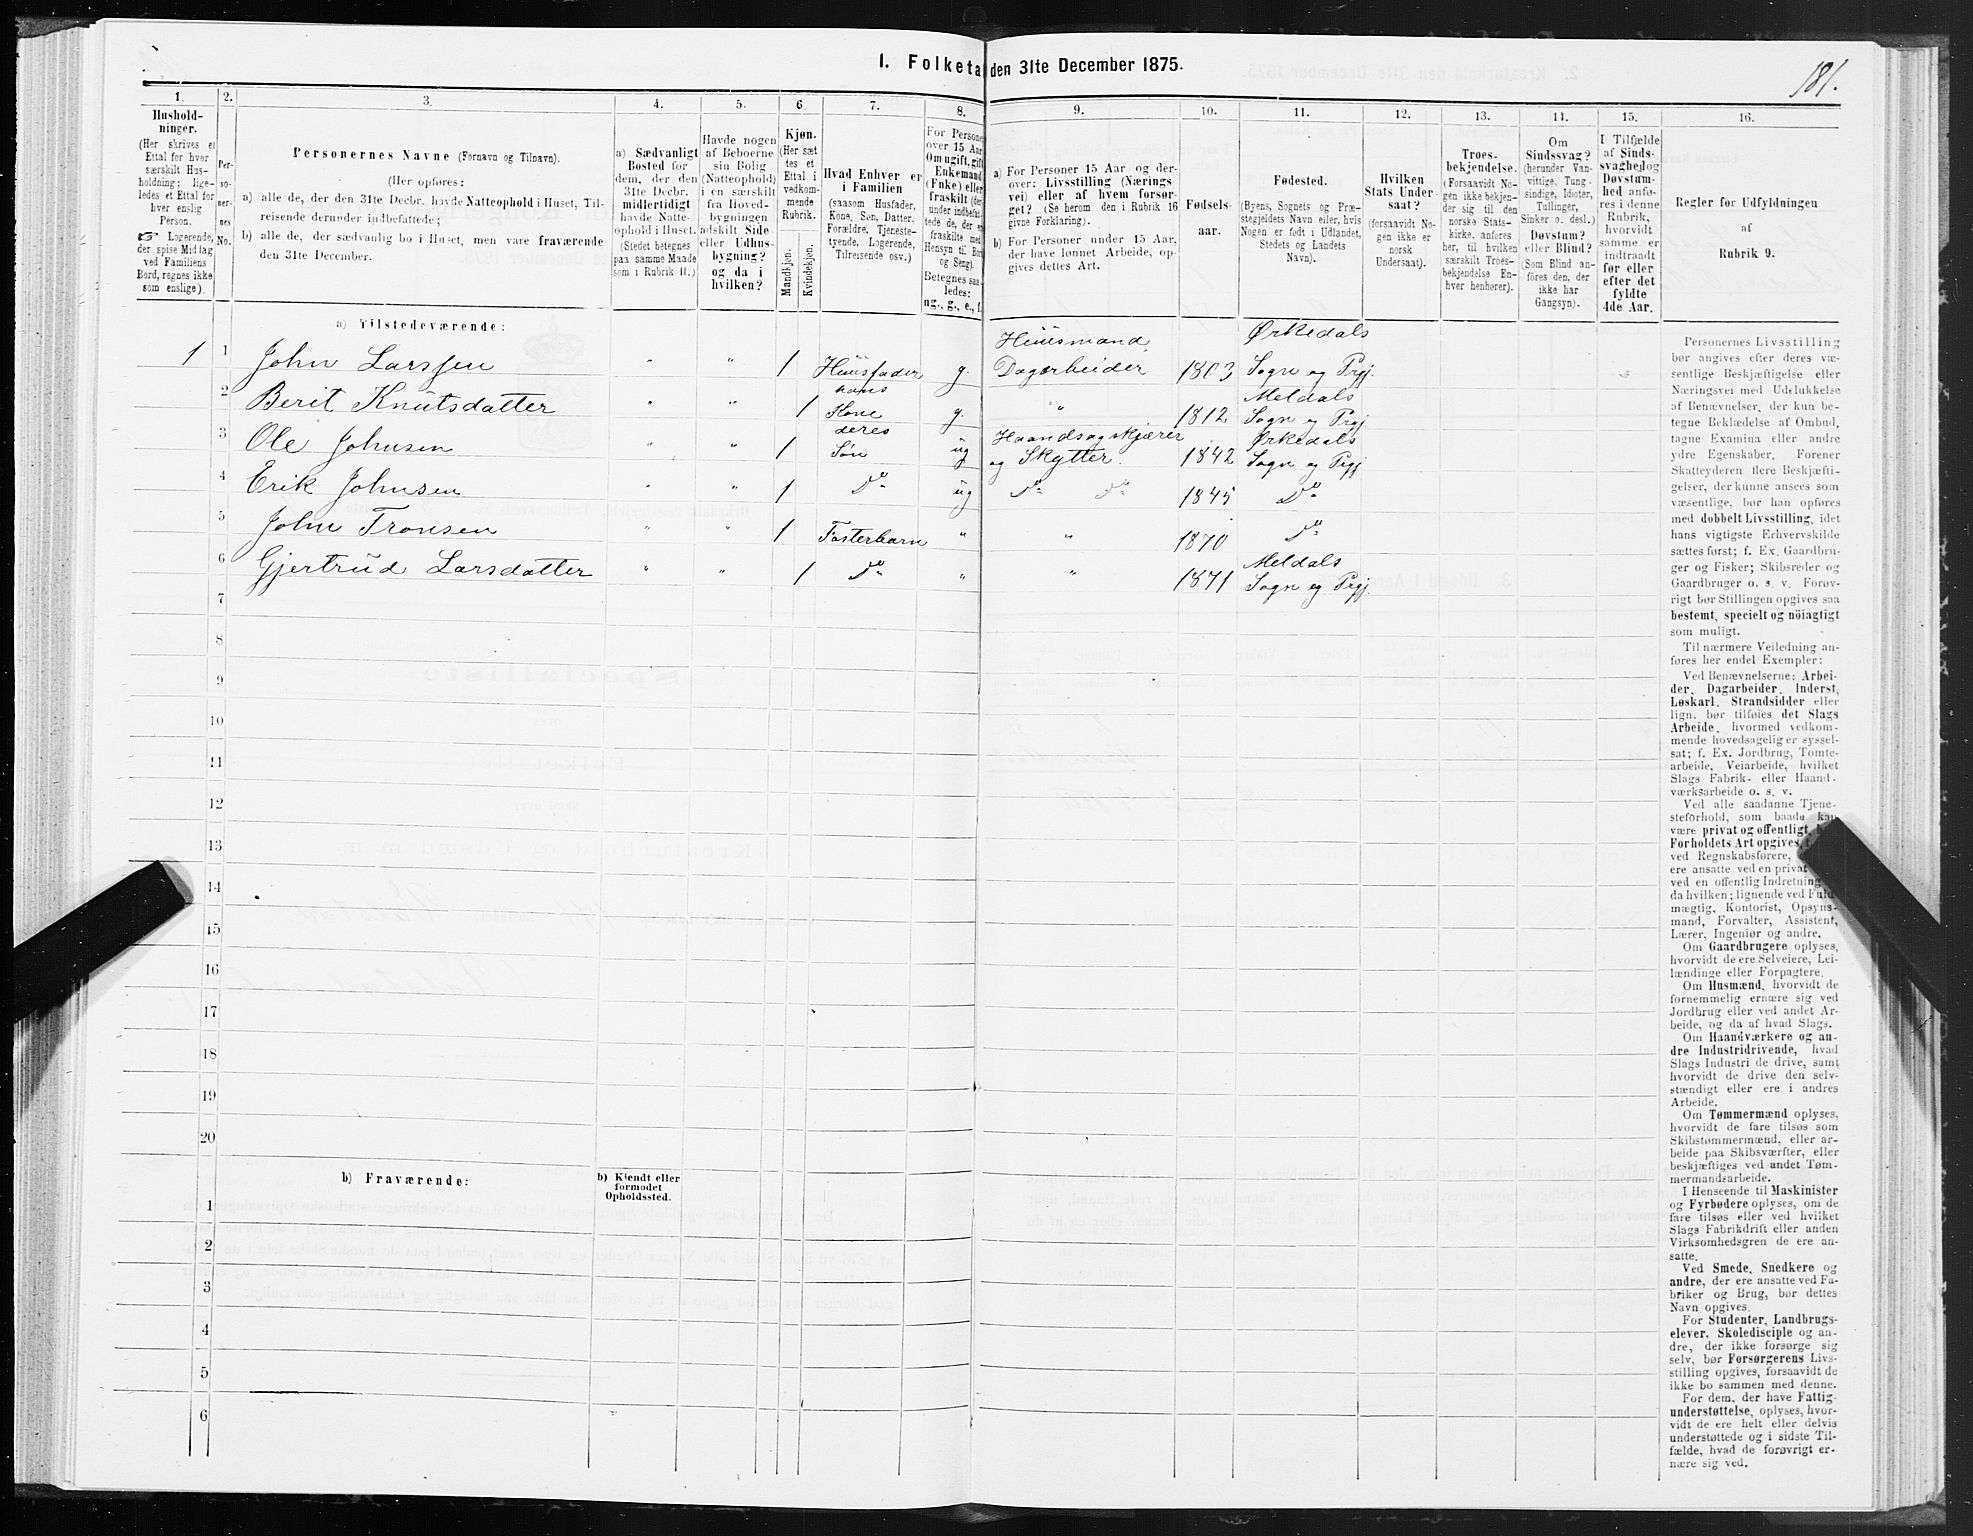 I. Folketal den 31te December 1875.
181.
1.
Hushold-
ninger.
(Her skrives et
Ettal for hver
særskilt Hus-
holdning; lige-
ledes et Ettal for
hver enslig
Person.
☞ Logerende,
der spise Middag
ved Familiens
Bord, regnes ikke
som enslige).
2.
Per-
so-
ner-
nes
No.
3.
Personernes Navne (Fornavn og Tilnavn).
(Her opføres:
a) alle de, der den 31te Decbr. havde Natteophold i Huset, Til-
reisende derunder indbefattede;
b) alle de, der sædvanlig bo i Huset, men vare fraværende
den 31te December.
4.
a) Sædvanligt
Bosted for
dem, der den
31te Decbr.
midlertidigt
havde Natte-
ophold i Huset.
(Stedet betegnes
paa samme Maade
som i Rubrik 11.)
5.
Havde nogen
af Beboerne
sin Bolig
(Natteophold)
i en særskilt
fra Hoved-
bygningen
adskilt Side-
eller Udhus-
bygning?
og da i
hvilken?
6.
Kjøn.
(Her sæt-
tes et
Ettal i
vedkom-
mende
Rubrik.
Mandkjøn.
Kvindekjøn.
7.
Hvad Enhver er
i Familien
(saasom Husfader,
Kone, Søn, Datter,
Forældre, Tjeneste-
tyende, Logerende,
Tilreisende osv.)
8.
For Personer
over 15 Aar:
Om ugift, gift,
Enkemand
(Enke) eller
fraskilt (der-
under indbefat-
tede de, der er
fraskilte med
Hensyn til Bord
og Seng).
Betegnes saa-
ledes:
ug., g., e., f.
9.
a) For Personer 15 Aar og der-
over: Livsstilling (Nærings-
vei) eller af hvem forsør-
get? (Se herom den i Rubrik 16
givne Forklaring).
b) For Personer under 15 Aar,
der have lønnet Arbeide, op-
gives dettes Art.
10.
Fødsels-
aar.
11.
Fødested.
(Byens, Sognets og Præ-
stegjeldets Navn eller, hvis
Nogen er født i Udlandet,
Stedets og Landets
Navn).
12.
Hvilken
Stats Under-
saat?
(forsaavidt No-
gen ikke er
norsk
Undersaat).
13.
Troes-
bekjendelse.
(Forsaavidt No-
gen ikke bekjen-
der sig til den
norske Stats-
kirke, anføres
her, til hvilken
særskilt Troes-
bekjendelse En-
hver henhører).
14.
Om
Sindssvag?
(herunder Van-
vittige, Tung-
sindige, Idioter,
Tullinger,
Sinker o. desl.)
Døvstum?
eller Blind?
(Som Blind an-
føres den, der
ikke har
Gangsyn).
15.
I Tilfælde
af Sinds-
svaghed og
Døvstum-
hed anfø-
res i denne
Rubrik,
hvorvidt
samme er
indtraadt
før eller
efter det
fyldte
4de Aar.
16.
Regler for Udfyldningen
af
Rubrik 9.
a) Tilstedeværende:
1 1 John Larssen " " 1 Huusfader g. Huusmand, Dagarbeider 1803 Ørkedals Sogn og Prgj.
2 Berit Knutsdatter " " 1 hans Kone g. " 1812 Meldals Sogn og Prgj
3 Ole Johnsen " " 1 deres Søn ug Haandsagskjærer og Skytter. 1842 Ørkedals Sogn og Prgj
4 Erik Johnsen " " 1 Do ug Do Do 1845 Do
5 John Tronsen " " 1 Fosterbarn " " 1870 Do
6 Gjertrud Larsdatter " " 1 Do " " 1871 Meldals Sogn og Prgj.
7
8
9
10
11
12
13
14
15
16
17
18
19
20
b) Fraværende:
b) Kjendt eller
formodet
Opholdssted.
1
2
3
4
5
6
Personernes Livsstilling
bør angives efter deres væ-
sentlige Beskjæftigelse eller
Næringsvei med Udelukkelse
af Benævnelser, der kun be-
tegne Beklædelse af Ombud,
tagne Examina eller andre
ydre Egenskaber. Forener
Skatteyderen flere Beskjæfti-
gelser, der kunne ansees som
væsentlige, bør han opføres
med dobbelt Livsstilling, idet
hans vigtigste Erhvervskilde
sættes først; f. Ex. Gaardbru-
ger og Fisker; Skibsreder og
Gaardbruger o. s. v. Forøv-
rigt bør Stillingen opgives saa
bestemt, specielt og nöiagtigt
som muligt.
Til nærmere Veiledning an-
føres her endel Exempler:
Ved Benævnelserne: Arbei-
der, Dagarbeider, Inderst,
Løskarl, Strandsidder eller
lign. bør tilføies det Slags
Arbeide, hvormed vedkom-
mende hovedsagelig er syssel-
sat; f. Ex. Jordbrug, Tomte-
arbeide, Veiarbeide, hvilket
Slags Fabrik- eller Haand-
værksarbeide o. s. v.
Ved alle saadanne Tjene-
steforhold, som baade kan
være privat og offentligt,
Forholdets Art opgives,
ved Regnskabsførere,
ere ansatte ved en privat
ved en offentlig Indretning
da hvilken; lignende ved Fuld-
mægtig, Kontorist, Opsyns-
mand, Forvalter, Assistent,
Lærer, Ingeniør og andre.
Om Gaardbrugere oplyses,
hvorvidt de ere Selveiere, Lei-
lændinge eller Forpagtere.
Om Husmænd, hvorvidt de
fornemmelig ernære sig ved
Jordbrug eller ved andet Ar-
beide, og da af hvad Slags.
Om Haandværkere og an-
dre Industridrivende, hvad
Slags Industri de drive, samt
hvorvidt de drive den selv-
stændigt eller ere i andres
Arbeide.
Om Tømmermænd oplyses,
hvorvidt de fare tilsøs som
Skibstømmermænd, eller ar-
beide paa Skibsværfter, eller
beskjæftiges ved andet Tøm-
mermandsarbeide.
I Henseende til Maskinister
og Fyrbødere oplyses, om de
fare tilsøs eller ved hvilket
Slags Fabrikdrift eller anden
Virksomhedsgren de ere an-
satte.
Ved Smede, Snedkere og
andre, der ere ansatte ved Fa-
briker og Brug, bør dettes
Navn opgives.
For Studenter, Landbrugs-
elever, Skoledisciple og an-
dre, der ikke forsørge sig
selv, bør Forsørgerens Livs-
stilling opgives, forsaavidt de
ikke bo sammen med denne.
For dem, der have Fattig-
understøttelse, oplyses, hvor-
vidt de ere helt eller delvis
understøttede og i sidste Til-
fælde, hvad de forøvrigt er-
nære sig ved.